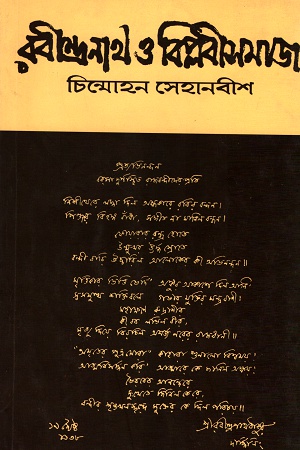 রবীন্দ্রনাথ ও বিপ্লবীসমাজ
চিন্মোহন সেহানবীশ
প্রত্যভিনন্দন
বক্সা দুর্গস্থিত রাজবন্দীদের প্রতি
নিশীথেরে লজ্জা দিল অন্ধকারে রবির বন্দন।
পিঞ্জরে বিহঙ্গ বাঁধা, সঙ্গীত না মানিল বন্ধন।
ফোয়ারার রন্ধ্র হতে
উন্মুখর ঊর্ধ্ব স্রোতে
বন্দী বারি উচ্চারিল আলোকের কী অভিনন্দন॥
মৃত্তিকার ভিত্তি ভেদি অঙ্কুর আকাশে দিল আনি
স্বসমুত্থ শক্তিবলে গভীর মুক্তির মন্ত্রবাণী।
মহাক্ষণে রুদ্রাণীর
কী বর লভিল বীর,
মৃত্যু দিয়ে বিরচিল অমর্ত্য নরের রাজধানী॥
"অমৃতের পুত্র মোরা" কাহারা শুনালো বিশ্বময়।
আত্মবিসর্জন করি আত্মারে কে জানিল অক্ষয়।
ভৈরবের আনন্দেরে
দুঃখেতে জিনিল কেরে,
বন্দীর শৃঙ্খলচ্ছন্দে মুক্তের কে দিল পরিচয়॥
১৯ জ্যৈষ্ঠ
১৩৩৮
শ্রীরবীন্দ্রনাথ ঠাকুর
দার্জিলিং